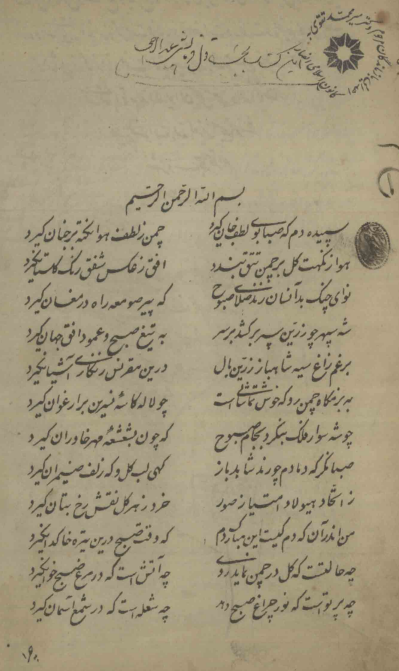 بسم الله الرحمن الرحیم
سپیده دم که صبا بوی لطف جان گیرد چمن ز لطف هوا نکته بر جنان گیرد
هوا ز نکهت گل بر چمن تتق بندد افق ز عکس شفق رنگ گلستان گیرد
نوای چنگ بدانسان زند صلای صبوح که پیر صومعه راه در مغان گیرد
شه سپهر چو زرین سپر کشد بر سر به تیغ صبح و عمود افق جهان گیرد
برغم زاغ سیه شاهباز زرین بال درین مقرنس زنگاری آشیان گیرد
به بزمگاه چمن رو که خوش تماشائیست چو لاله کاسه نسرین و ارغوان گیرد
چو شه سوار فلک بنگرد بجام صبوح که چون بشعشعه مهر خاوران گیرد
صبا نگر که دمادم چو رند شاهد باز گهی لب گل و گه زلف ضیمران گیرد
ز اتحاد هیولا و امتیاز صور خرد ز هر گل نقش رخ بتان گیرد
من اندر آن که دم کیست این مبارک دم که وقت صبح درین تیره خاکدان گیرد
چه حالتست که گل در چمن نماید روی چه آتش است که در مرغ صبح خوان گیرد
چه پرتو است که نور چراغ صبح دهد چه شعله است که در شمع آسمان گیرد